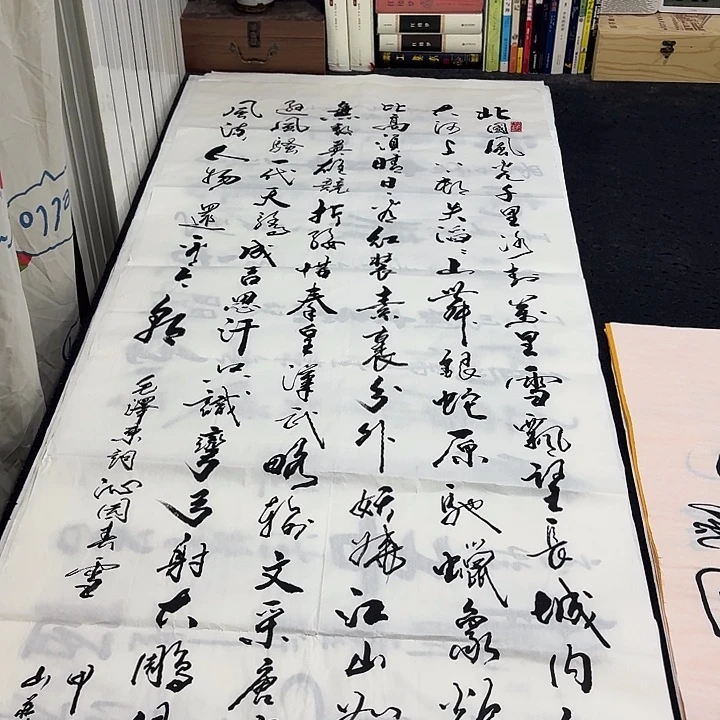 北國風光千里冰封萬里雪飄望長城內
大河上下頓失滔滔山舞銀蛇原馳蠟象欲
比高須晴日看紅裝素裹分外妖嬈江山如
無數英雄競折腰惜秦皇漢武略輸文采唐
遜風騷一代天驕成吉思汗只識彎弓射大鵰
風流人物還看今朝
毛澤東詞沁園春雪
甲
山